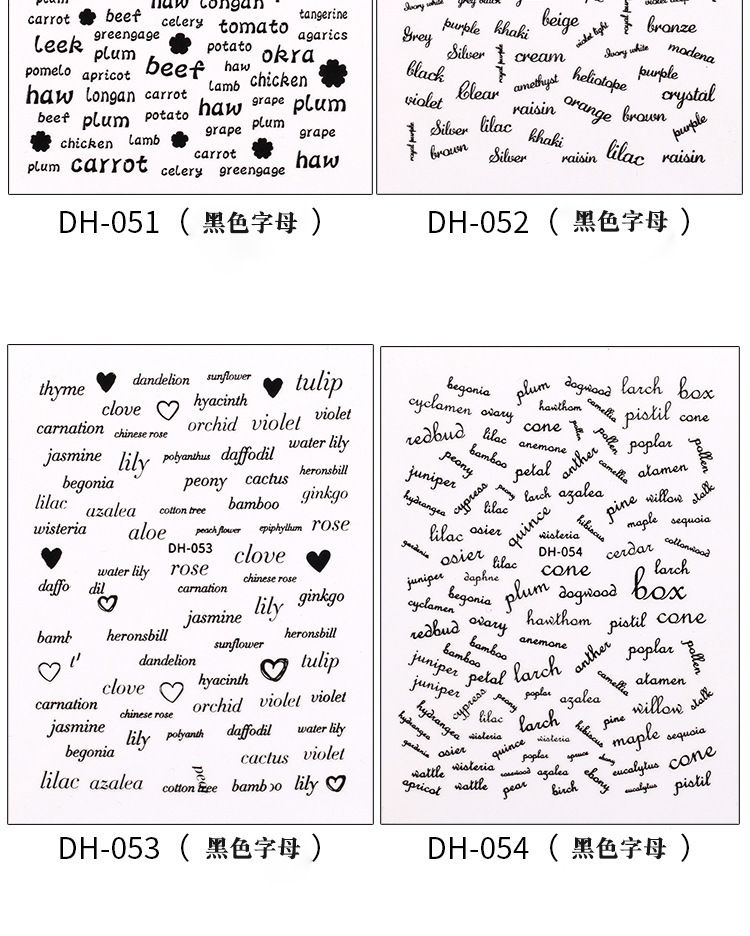 haw longan
carrot beef celery tomato tangerine
greengage agarics
leek plum potato okra
pomelo apricot beef haw chicken
lamb
haw longan carrot haw grape plum
beef plum potato grape plum grape
chicken lamb carrot haw
plum carrot celery greengage
beige
Grey purple khaki violet light bronze
Silver cream Ivory white modena
black amethyst heliotope purple
violet Clear raisin orange brown crystal
royal purple Silver lilac khaki purple
brown Silver raisin lilac raisin
DH-051（黑色字母）
DH-052（黑色字母）
thyme dandelion sunflower tulip
clove hyacinth
carnation chinese rose orchid violet violet
jasmine lily polyanthus daffodil water lily
begonia peony cactus heronsbill
lilac azalea cotton tree bamboo ginkgo
wisteria aloe peach flower epiphyllum rose
DH-053
water lily rose clove
chinese rose
daffo dil carnation ginkgo
jasmine lily
bamb heronsbill sunflower heronsbill
dandelion tulip
clove hyacinth
carnation chinese rose orchid violet violet
jasmine lily polyanth daffodil water lily
begonia cactus violet
lilac azalea cotton tree bamb oo lily
begonia plum dogwood larch box
cyclamen ovary hawthom camellia pistil cone
redbud lilac cone pollen pollen poplar pollen
peony bamboo anemone anther camellia atamen
juniper petal
hydrangea cypress peony larch azalea pine willow stalk
lilac quince hibiscus maple sequoia
lilac osier wisteria
gardenia osier lilac DH-054 cerdar cottonwood
juniper daphne cone larch
begonia plum dogwood box
cyclamen
redbud ovary hawthom pistil cone
bamboo anemone poplar pollen
juniper bamboo petal larch anther camellia atamen
juniper cypress peony poplar azalea willow stalk
hydrangea lilac larch pine
hydrangea wisteria wisteria hibiscus maple sequoia
gardenia osier quince poplar cone
wattle wisteria azalea ebony eucalyptus
apricot wattle pear birch eucalyptus pistil
DH-053（黑色字母）
DH-054（黑色字母）